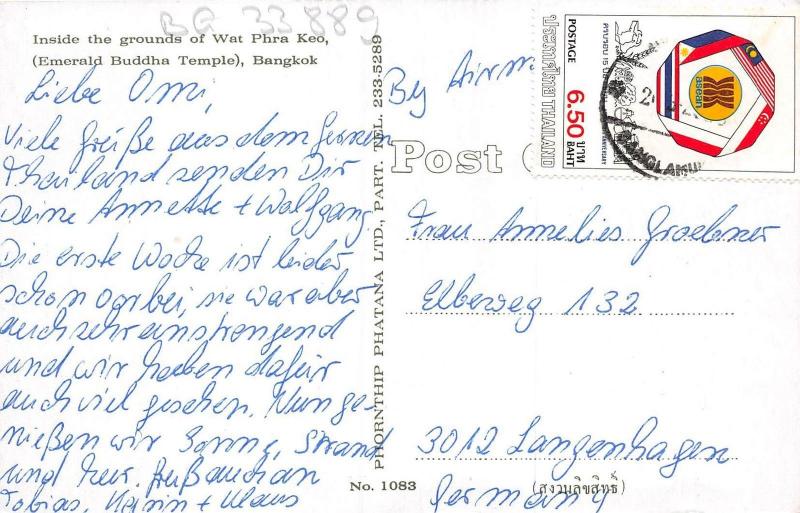 BG 33889
Inside the grounds of Wat Phra Keo,
(Emerald Buddha Temple), Bangkok
Liebe Omi,
viele Grüße aus dem fernen
Thailand senden Dir
Deine Annette + Wolfgang
Die erste Woche ist leider
schon vorbei, sie war aber
auch sehr anstrengend
und wir haben dafür
auch viel gesehen. Nun ge-
nießen wir Sonne, Strand
und Meer. Gruß auch an
Tobias, Karin + Klaus
PHORNTHIP PHATANA LTD., PART. TEL. 233-5289
No. 1083
By Airmail
Post
ประเทศไทย THAILAND
POSTAGE
6.50 บาท
BAHT
ครบรอบ 15 ปี
ANNIVERSARY
asean
BANGLAMUNG
Frau Annelies Groebner
Elbeweg 132
3012 Langenhagen
Germany
(สงวนลิขสิทธิ์)